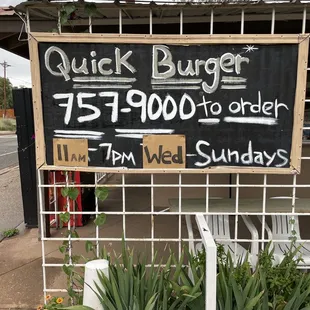 Quick Burger
757-9000 to order
11AM - 7PM Wed - Sundays